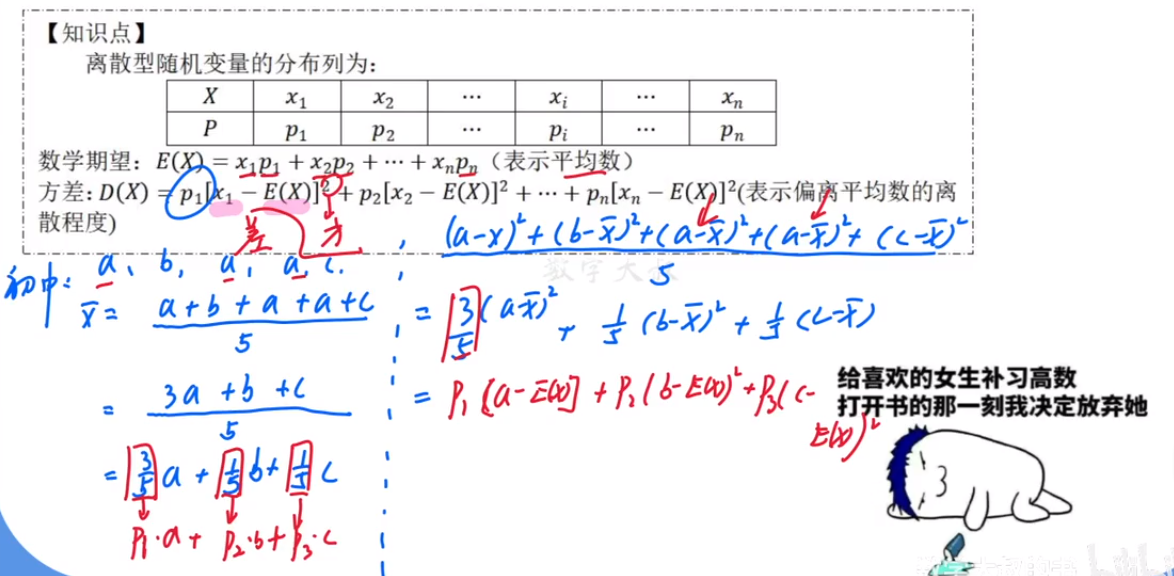 【知识点】
离散型随机变量的分布列为：
X x₁ x₂ … xᵢ … xₙ
P p₁ p₂ … pᵢ … pₙ
数学期望：E(X) = x₁p₁ + x₂p₂ + ⋯ + xₙpₙ（表示平均数）
方差：D(X) = p₁[x₁ − E(X)]² + p₂[x₂ − E(X)]² + ⋯ + pₙ[xₙ − E(X)]²(表示偏离平均数的离
散程度)
差 方
初中: a、b, a, a, c.
x̄ = (a+b+a+a+c)/5
= (3a+b+c)/5
= 3/5 a + 1/5 b + 1/5 c
P₁·a + P₂·b + P₃·c
((a-x)²+(b-x̄)²+(a-x̄)²+(a-x̄)²+(c-x̄)²)/5
= 3/5 (a-x̄)² + 1/5 (b-x̄)² + 1/5 (c-x̄)
= P₁[a-E(X)] + P₂(b-E(X))² + P₃(c-
E(X))²
给喜欢的女生补习高数
打开书的那一刻我决定放弃她